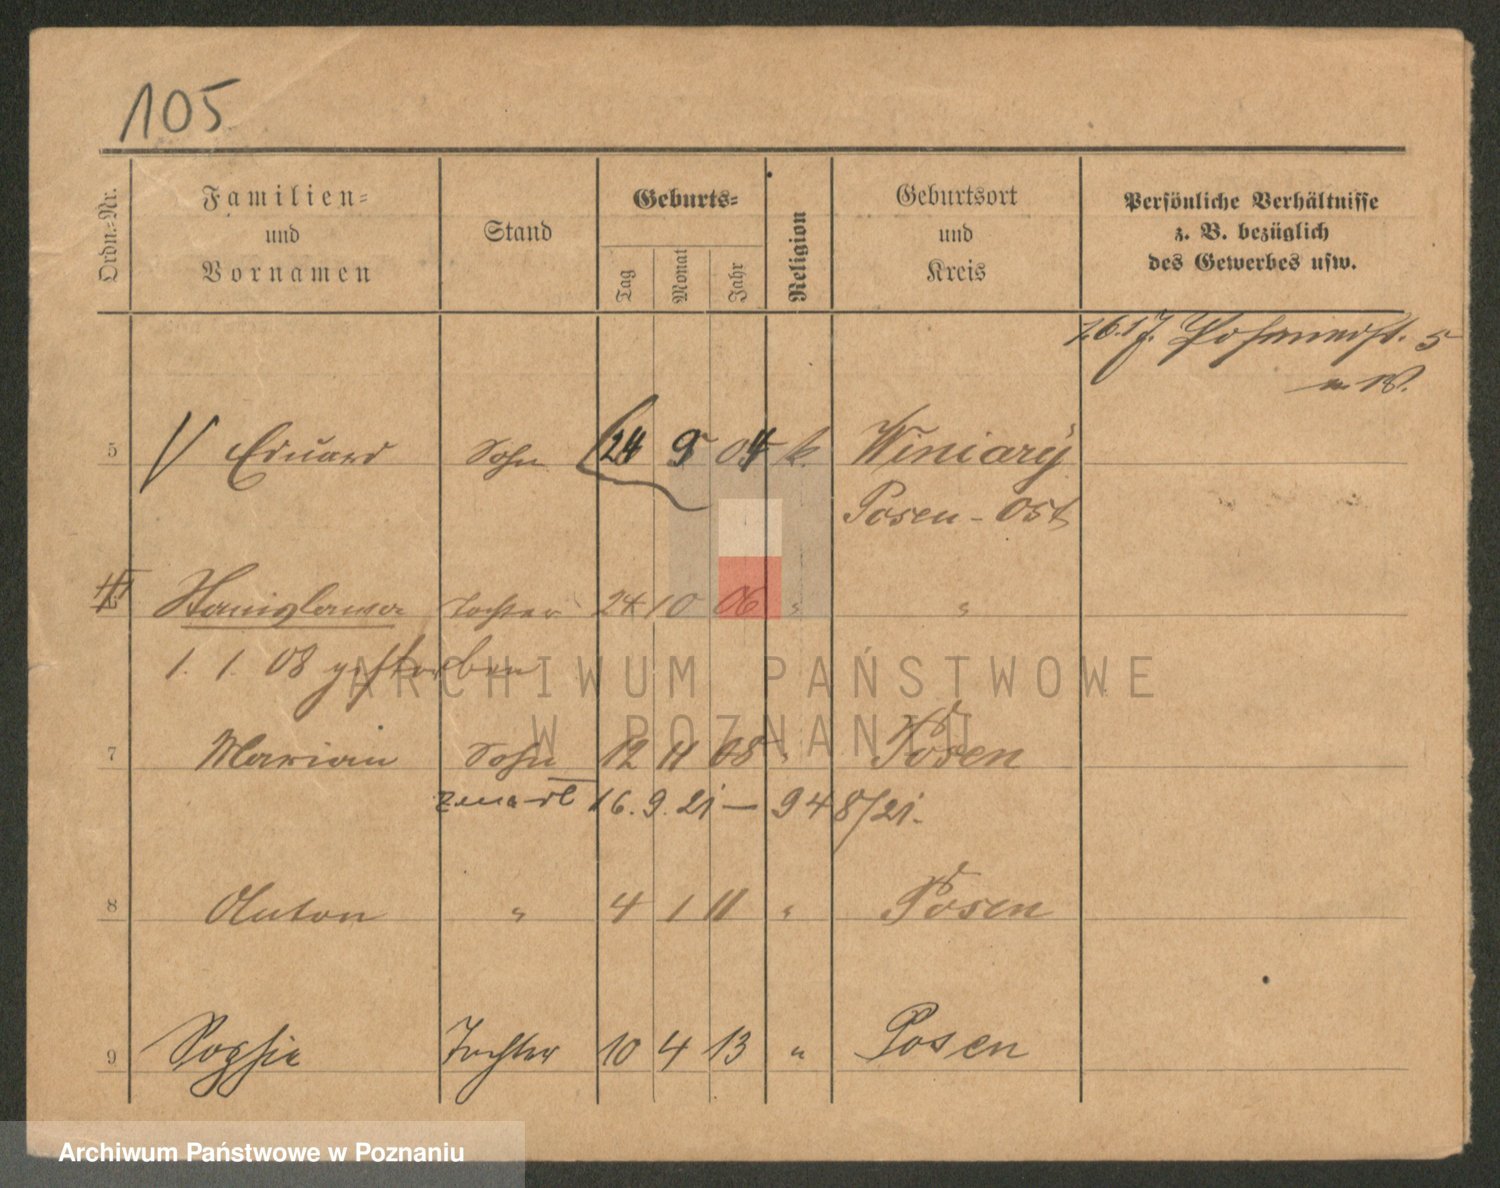 105
Ordn.-Nr.
Familien-
und
Vornamen
Stand
Geburts-
Tag
Monat
Jahr
Religion
Geburtsort
und
Kreis
Persönliche Verhältnisse
z. B. bezüglich
des Gewerbes usw.
5
5 Eduard Sohn 24 9 04 k. Winiary
Posen-Ost
Stanislawa Tochter 24 10 06 " "
1. 1. 08 gestorben
7 Marian Sohn 12 11 08 " Posen
zmarł 16. 9. 21 — 948/21.
8 Anton " 4 1 11 " Posen
9 Sophie Tochter 10 4 13 " Posen
ARCHIWUM PAŃSTWOWE
W POZNANIU
Archiwum Państwowe w Poznaniu